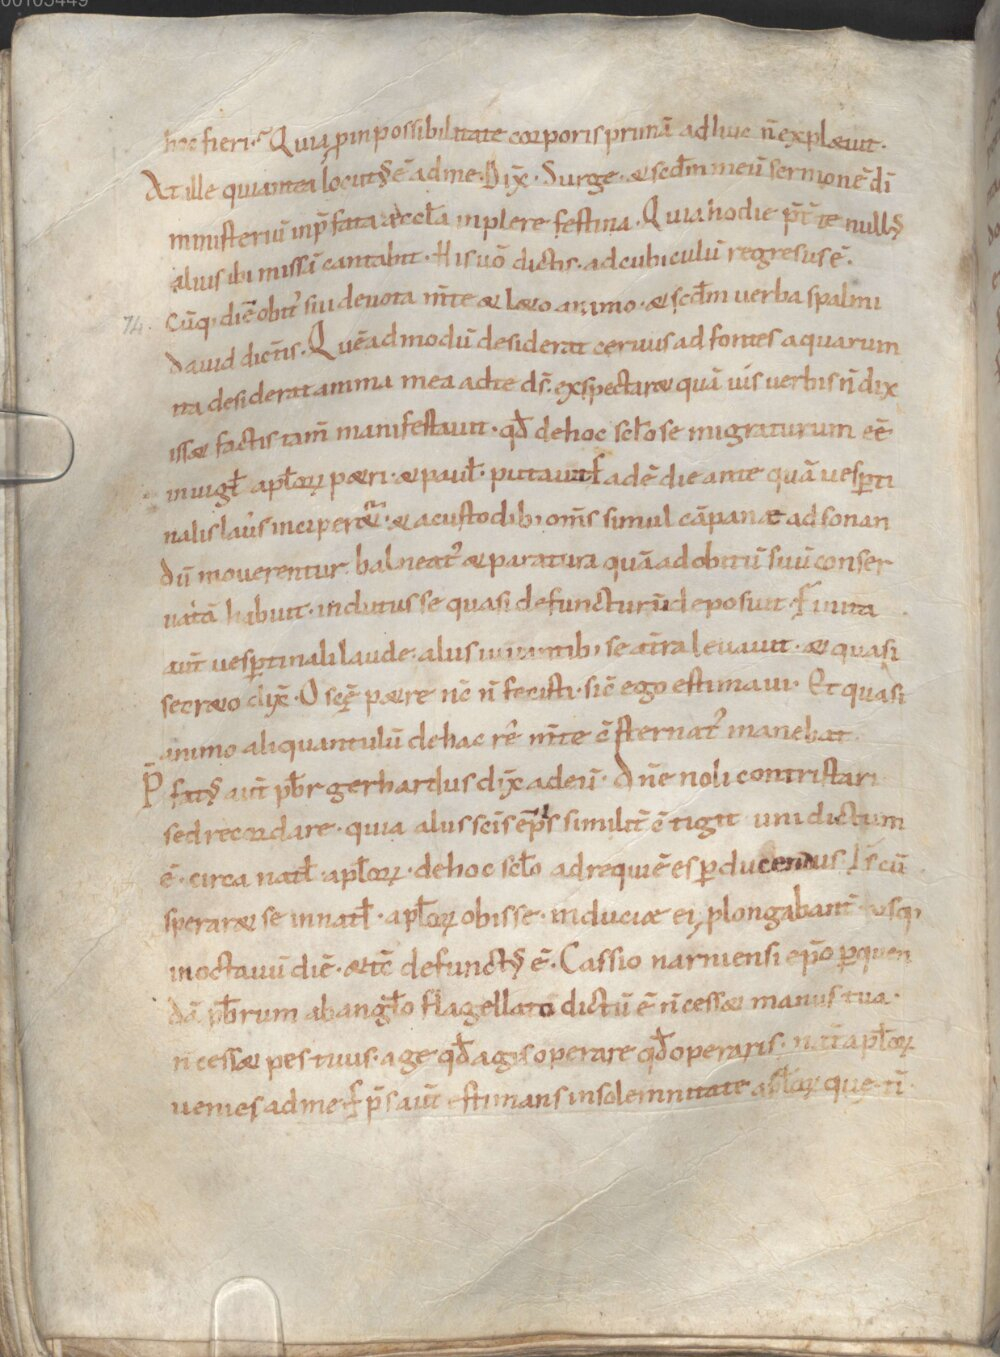 00105449
hoc fieri. Quia p̱ inpossibilitate corporis primā adhuc n̄ explæuit.
At ille qui antea locutꝰ ē ad me. Dix̄. Surge. & scd̄m meū sermonē dī
ministeriū in p̄fata æccl̄a inplere festina. Quia hodie p̄t̄ te nullꝰ
alius ibi missā cantabit. His uō dictis. ad cubiculū regresus ē.
74. Cūq; diē obitꝰ sui deuota m̄te & læto animo. & scd̄m uerba spalmi
dauid dictis. Quēadmodū desiderat ceruus ad fontes aquarum
ita desiderat anima mea ad te dꝭ. exspectaræ quā uis uerbis n̄ dix
issæ factis tam̄ manifestauit. qd̄ de hoc scl̄o se migraturum eē
in uigł apl̄oꝝ pætri. & paul̄. putauit eadē die ante quā uesp̱ti
nalis laus inciperæt̄. & a custodib; om̄s simul cāpanæ ad sonan
dū mouerentur. balneatꝰ & paratura quā ad obitū suū conser
uatā habuit. indutus se quasi defuncturū deposuit. Finita
aūt uesp̱tinali laude. alus iuuantib; se at̄ra leuauit. & quasi
secræto dix̄. O scē pætre nc̄ n̄ fecisti. sic ego estimaui. Et quasi
animo aliquantulū de hac rē m̄te cōsternatꝰ manebat.
P̄fatꝰ aūt pb̄r gerhardus dix̄ ad eū. Dn̄e noli contristari
sed recordare. quia alus scīs ep̄is similit̄ cōtigit uni dictum
ē. circa natł. apl̄oꝝ. de hoc scl̄o ad requiē es p̱ducendus. Is cū
speraræt se in natł. apl̄oꝝ obisse. induciæ ei p̱longabant̄ usq;
in octauū diē. & tc̄ defunctꝰ ē. Cassio narniensi ep̄o p̱ quen
dā pb̄rum ab angl̄o flagellato dictū ē n̄ cessæt manus tua.
n̄ cessæt pes tuus. age qd̄ agis operare qd̄ operaris. nat̄ apl̄oꝝ
uenies ad me. Ep̄s aūt estimans in solemnitate apl̄oꝝ que tī